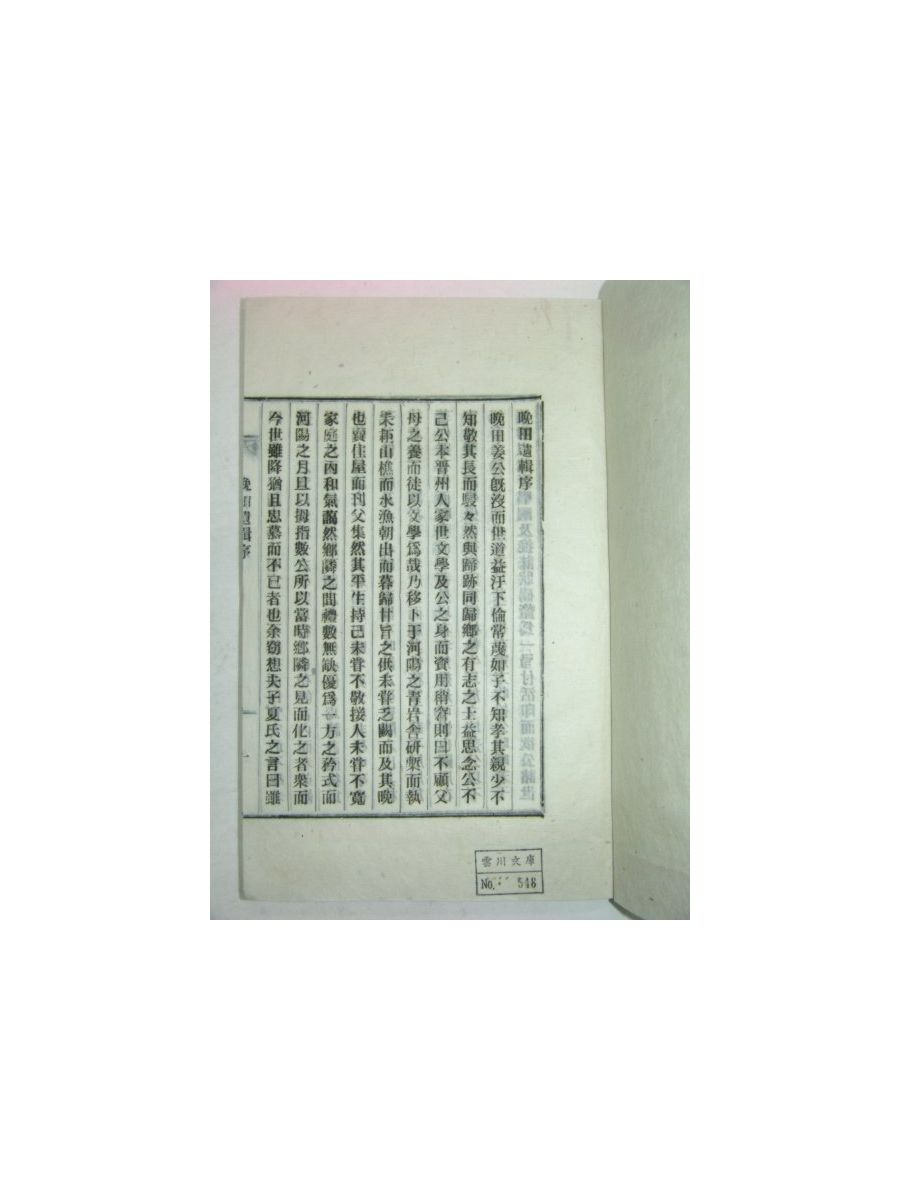 晚田遺輯序
晚田姜公旣沒而世道益汙下倫常蔑如子不知孝其親少不
知敬其長而駸々然與蹄跡同歸鄕之有志之士益思念公不
已公本晋州人家世文學及公之身而資用稍窘則曰不顧父
母之養而徒以文學爲哉乃移卜于河陽之靑岩舍硏槧而執
耒耜山樵而水漁朝出而暮歸甘旨之供未甞乏闕而及其晚
也賣住屋而刊父集然其平生持己未甞不敬接人未甞不寬
家庭之內和氣藹然鄕隣之間禮數無缺優爲一方之矜式而
河陽之月旦以拇指數公所以當時鄕隣之見而化之者衆而
今世雖降猶且思慕而不已者也余窃想夫子夏氏之言曰雖
晚田遺輯序
一
雲川文庫
No. 546